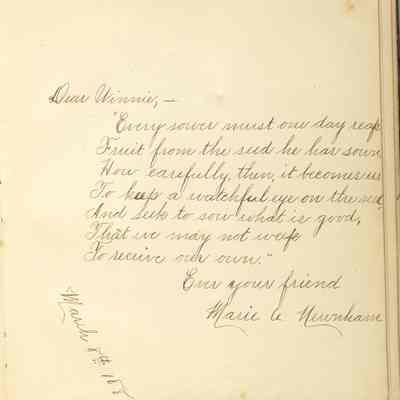 Dear Winnie, —
"Every sower must one day reap
Fruit from the seed he has sown
How carefully, then, it becomes us
To keep a watchful eye on the seed,
And seek to sow what is good,
That we may not weep
To receive our own."
Ever your friend
Marie A Newnham
March 8th 188